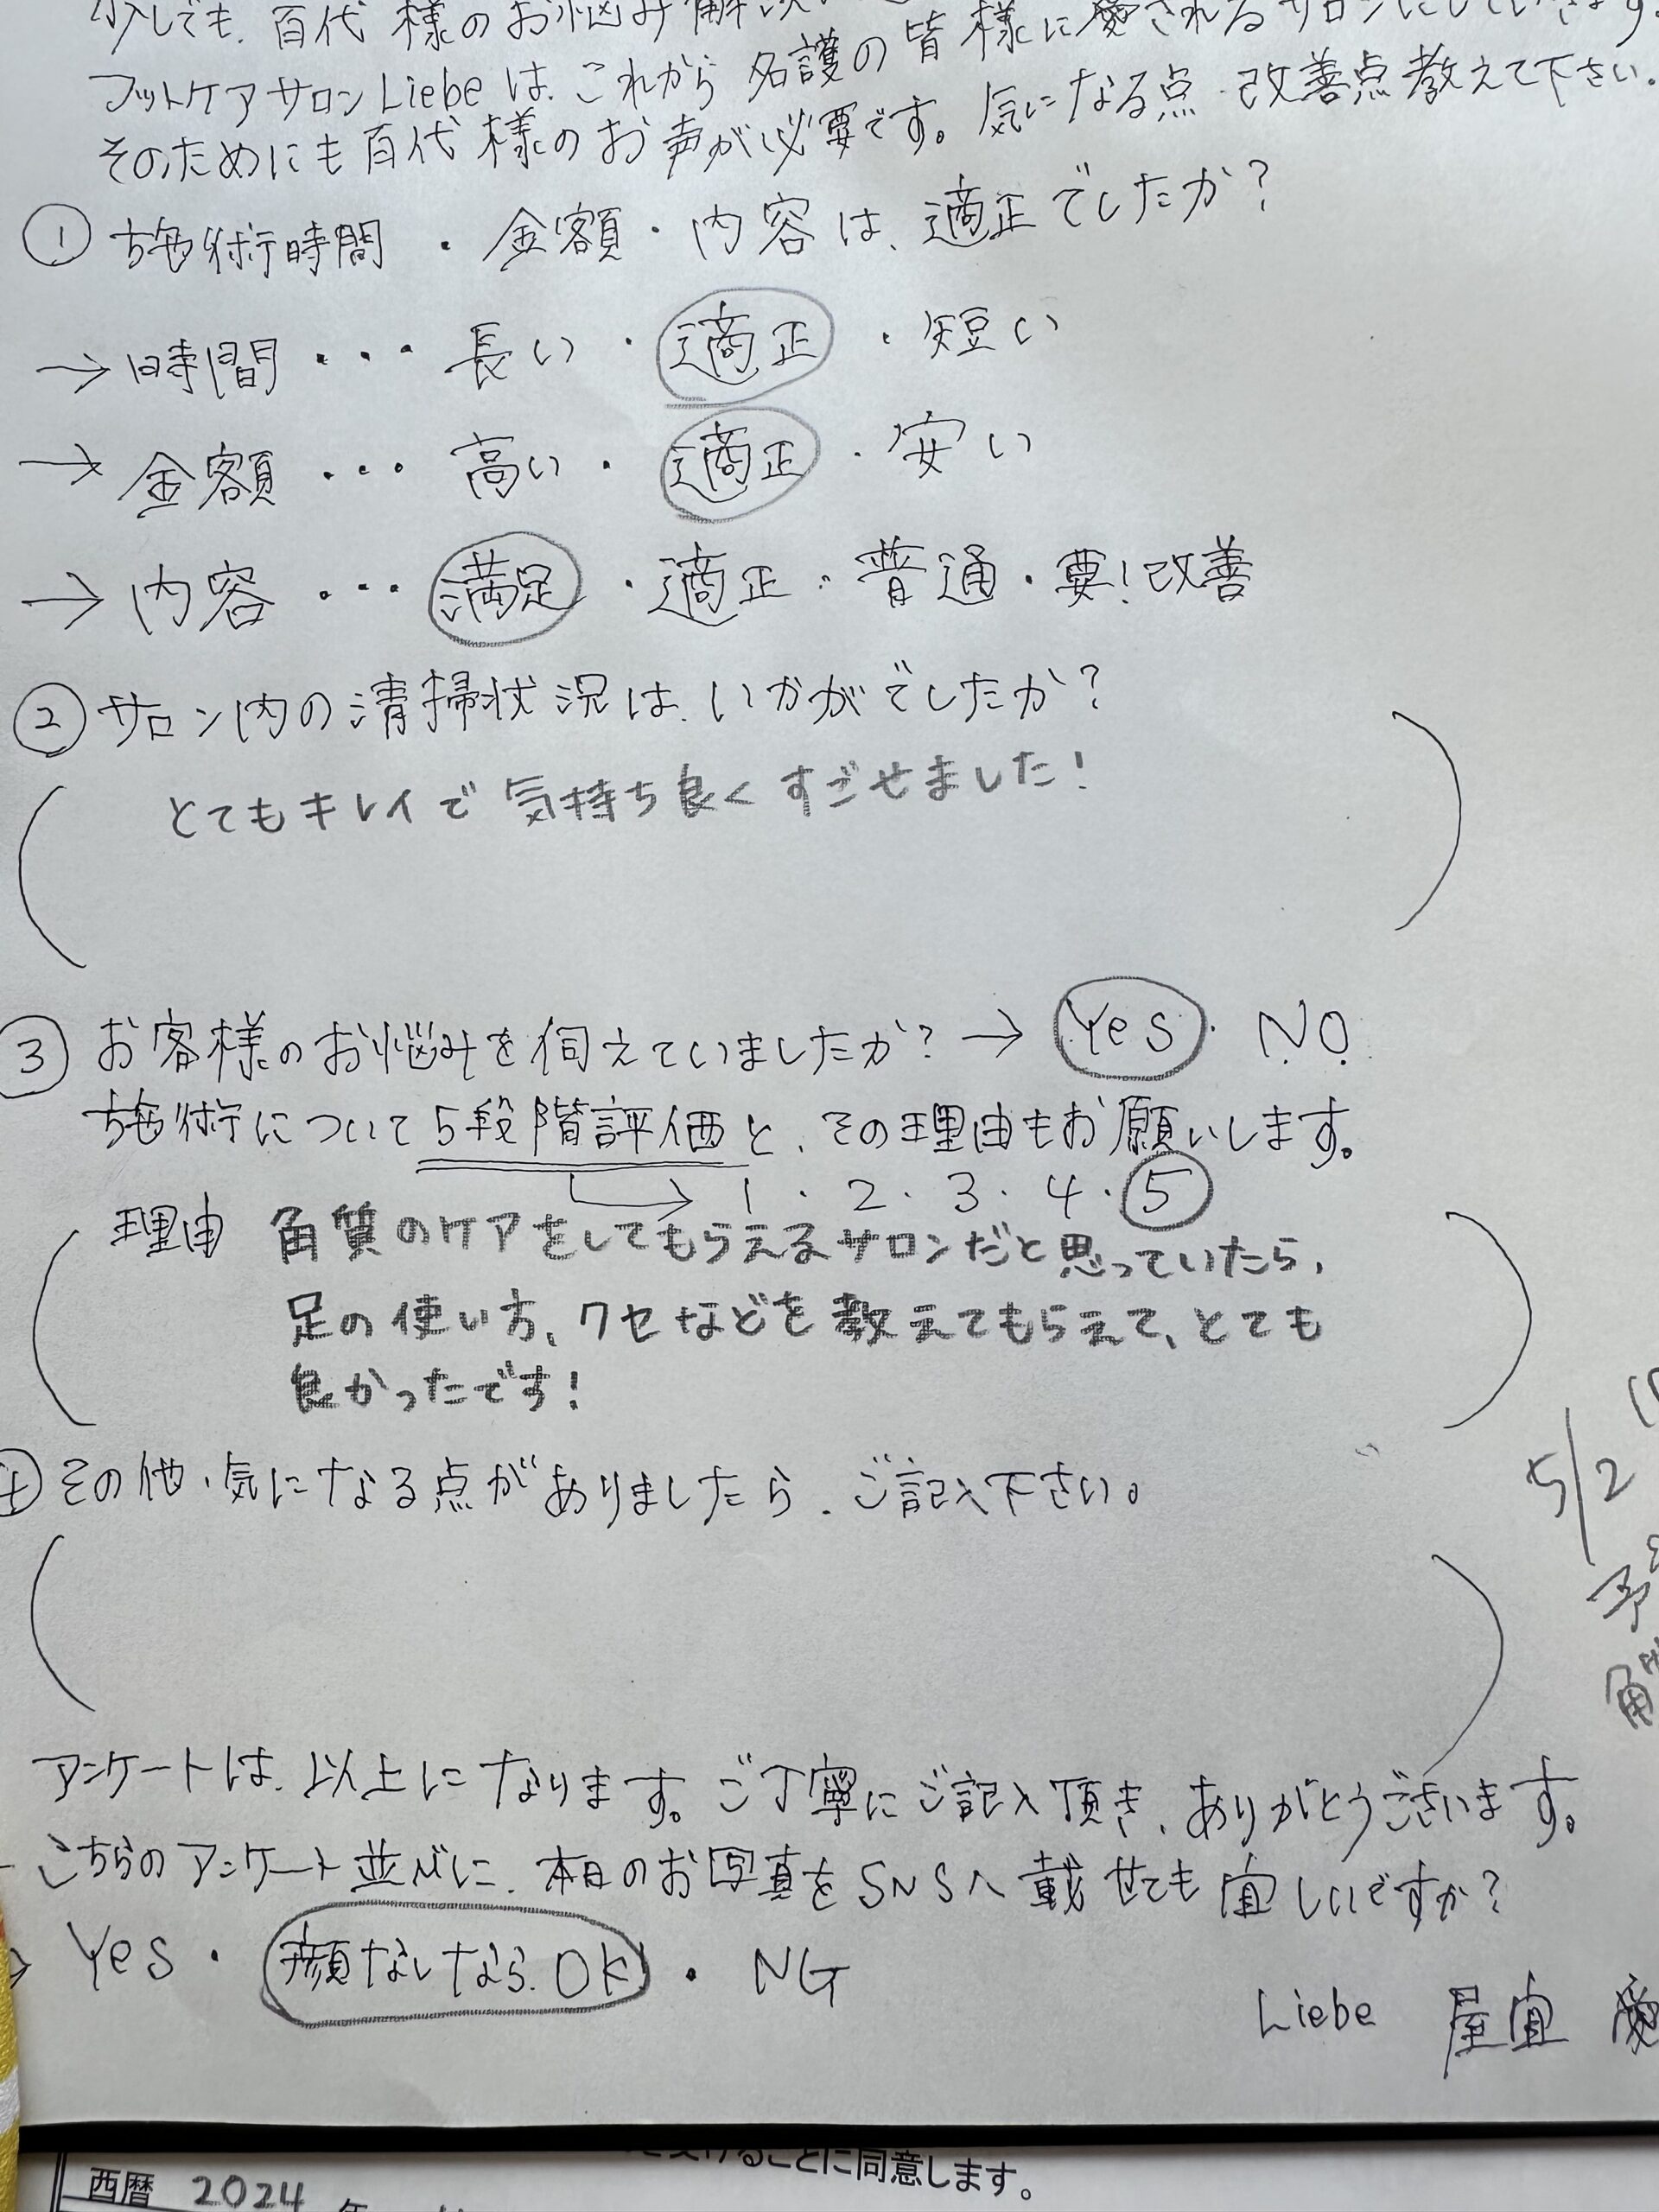 少しでも、百代様のお悩み解決
フットケアサロンLiebeは、これから名護の皆様に愛されるサロンにしていきます。
そのためにも百代様のお声が必要です。気になる点・改善点教えて下さい。
① 施術時間・金額・内容は、適正でしたか？
→時間・・・長い・適正・短い
→金額・・・高い・適正・安い
→内容・・・満足・適正・普通・要！改善
② サロン内の清掃状況は、いかがでしたか？
とてもキレイで気持ち良くすごせました！
③ お客様のお悩みを伺えていましたか？→ Yes・NO
施術について5段階評価と、その理由もお願いします。
→ 1・2・3・4・5
理由 角質のケアをしてもらえるサロンだと思っていたら、
足の使い方、クセなどを教えてもらえて、とても
良かったです！
その他・気になる点がありましたら、ご記入下さい。
5/2
アンケートは、以上になります。ご丁寧にご記入頂き、ありがとうございます。
こちらのアンケート並びに、本日のお写真をSNSへ載せても宜しいですか？
→ Yes・顔なしなら、OK・NG
Liebe 屋宜
ことに同意します。
西暦 2024 年